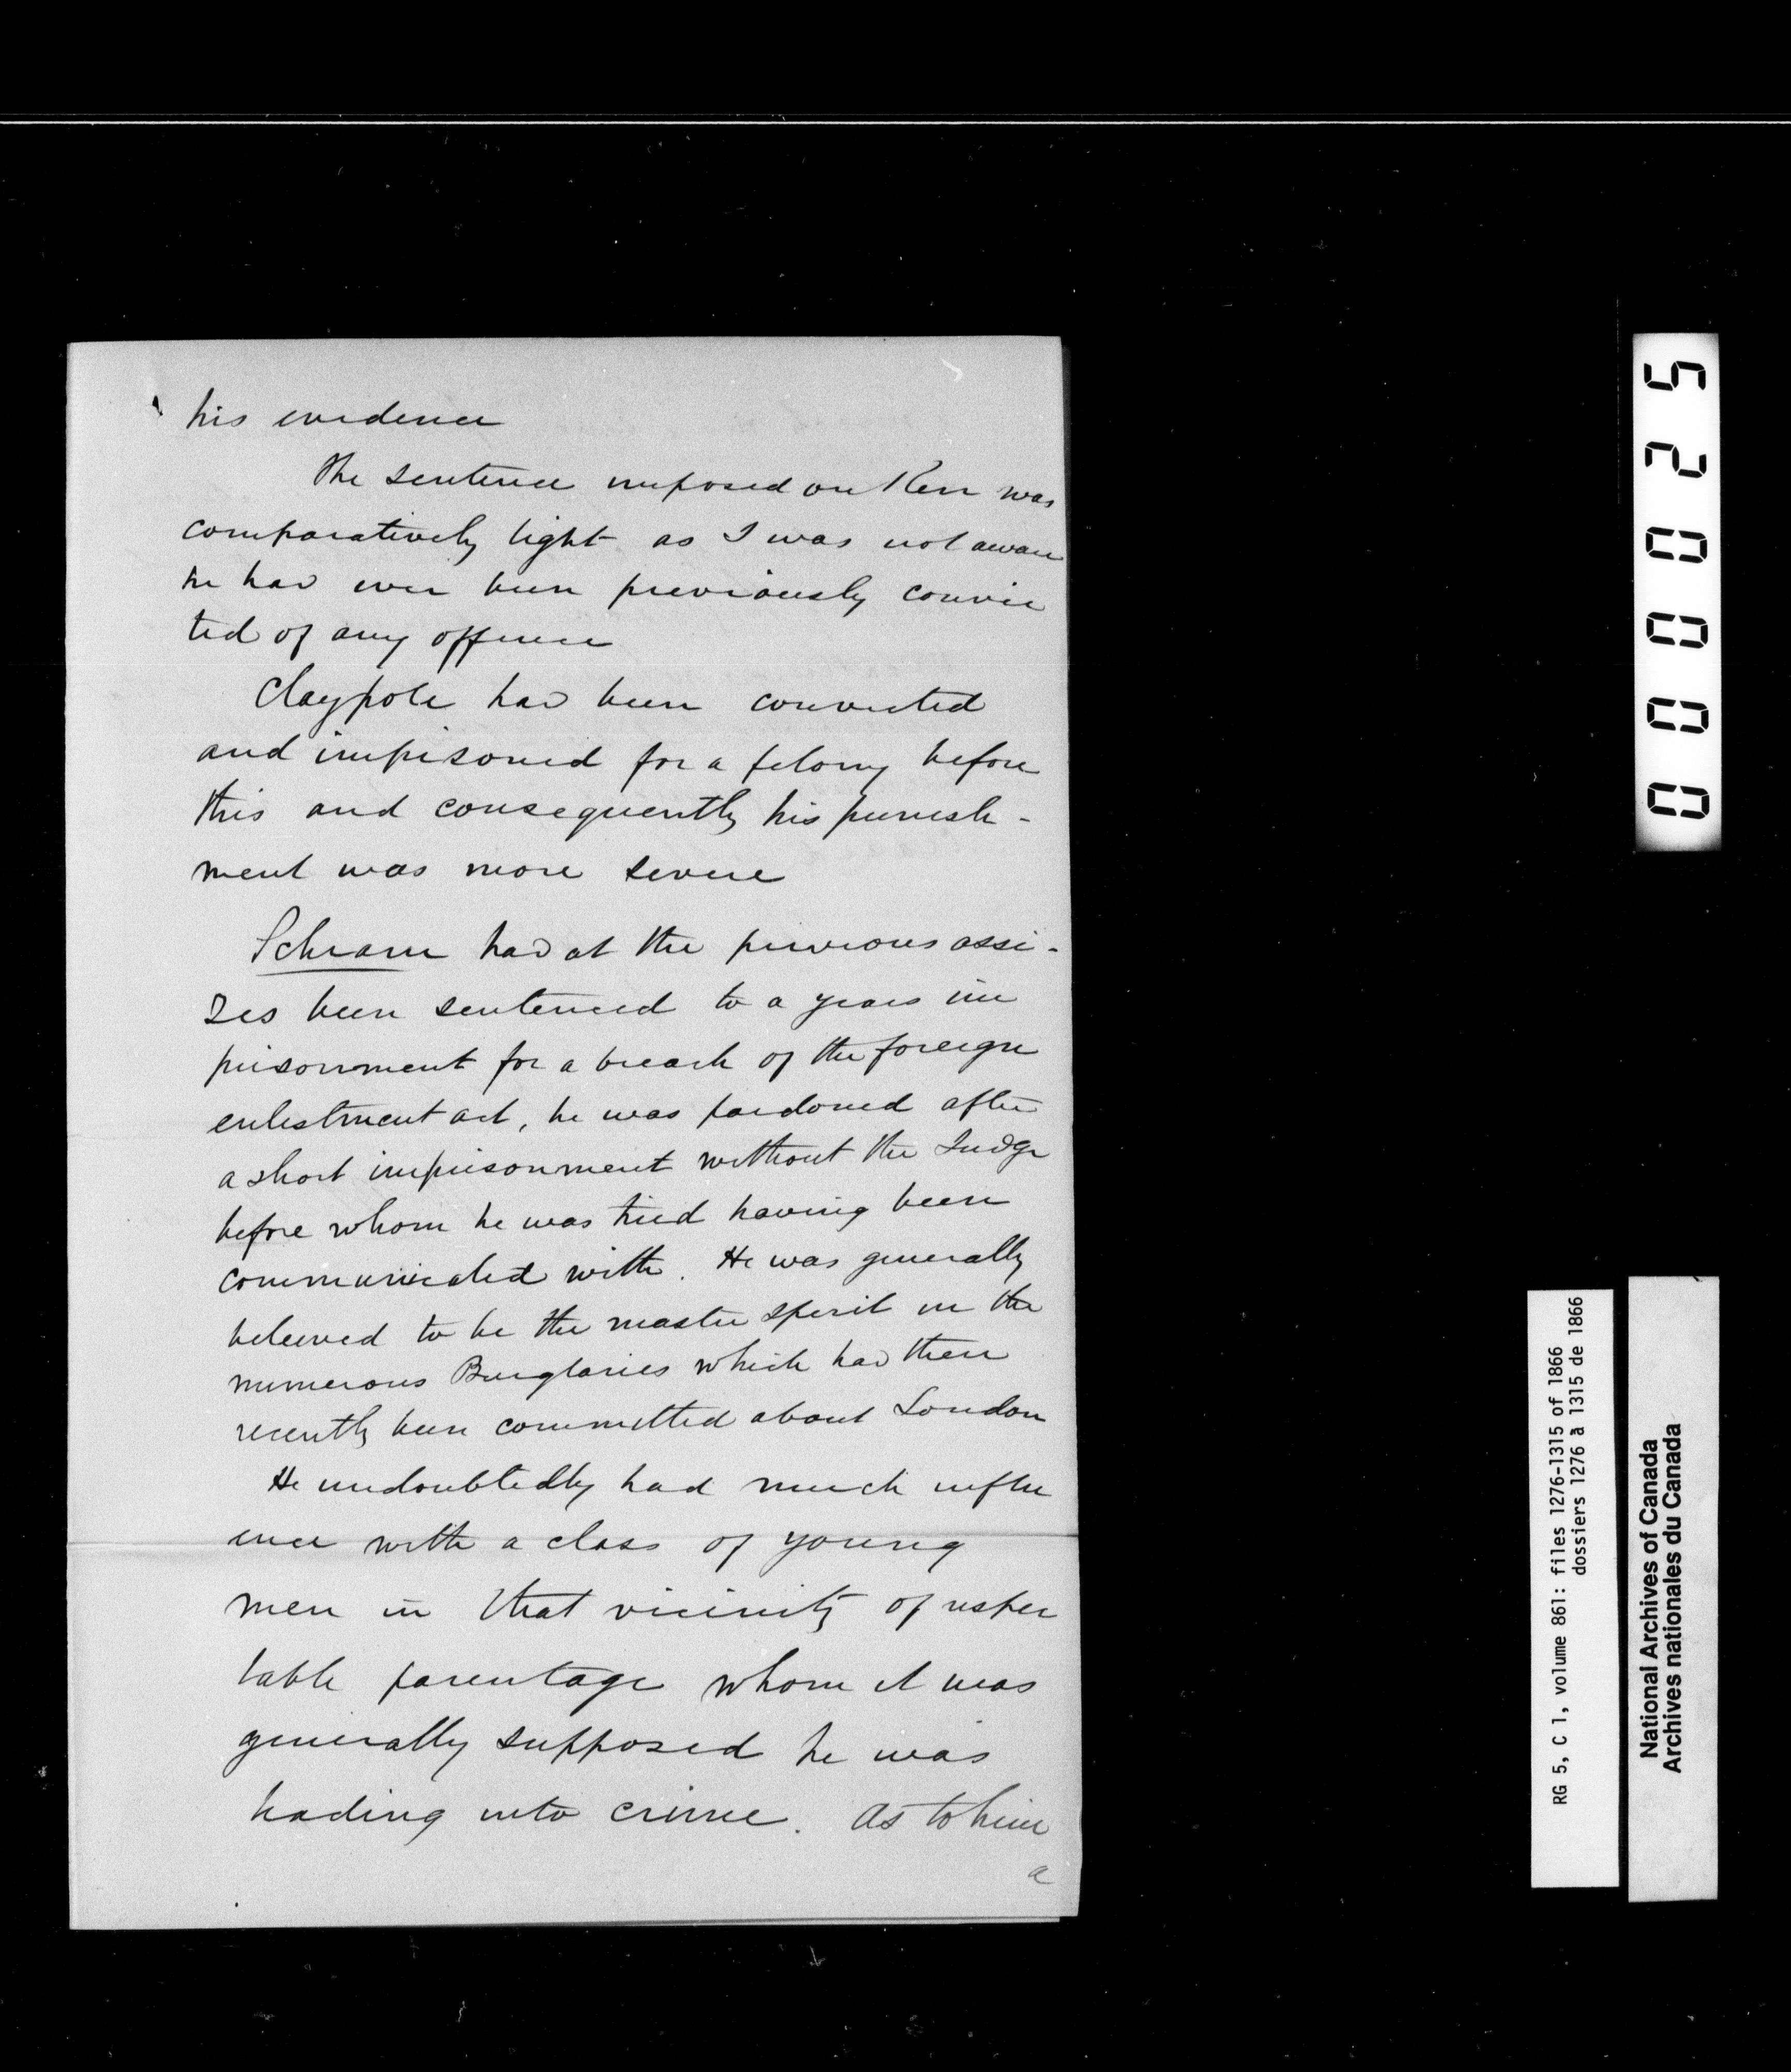 his evidence
The sentence imposed on Kerr was
comparatively light as I was not aware
he had ever been previously convic
ted of any offence
Claypole had been convicted
and imprisoned for a felony before
this and consequently his punish-
ment was more severe
Schram had at the previous assi-
zes been sentenced to a years im
prisonment for a breach of the foreign
enlistment act, he was pardoned after
a short imprisonment without the Judge
before whom he was tried having been
communicated with. He was generally
believed to be the master spirit in the
numerous Burglaries which had then
recently been committed about London
He undoubtedly had much influ
ence with a class of young
men in that vicinity of respec
table parentage whom it was
generally supposed he was
leading into crime. As to him
a
52000
RG 5, C 1, volume 861: files 1276-1315 of 1866
dossiers 1276 à 1315 de 1866
National Archives of Canada
Archives nationales du Canada